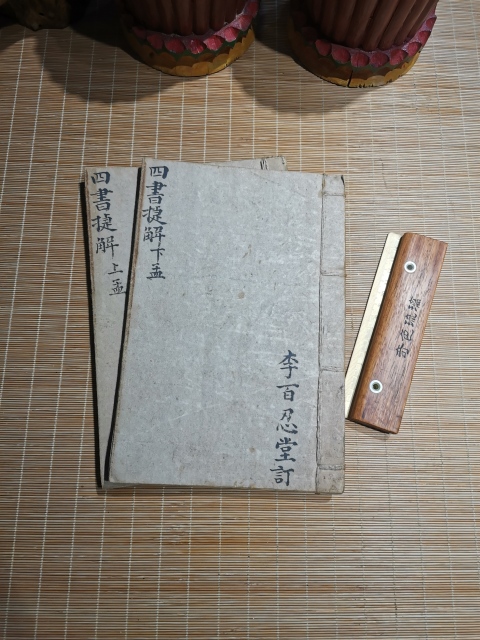 四書捷解上孟
四書捷解下孟
李百忍堂訂